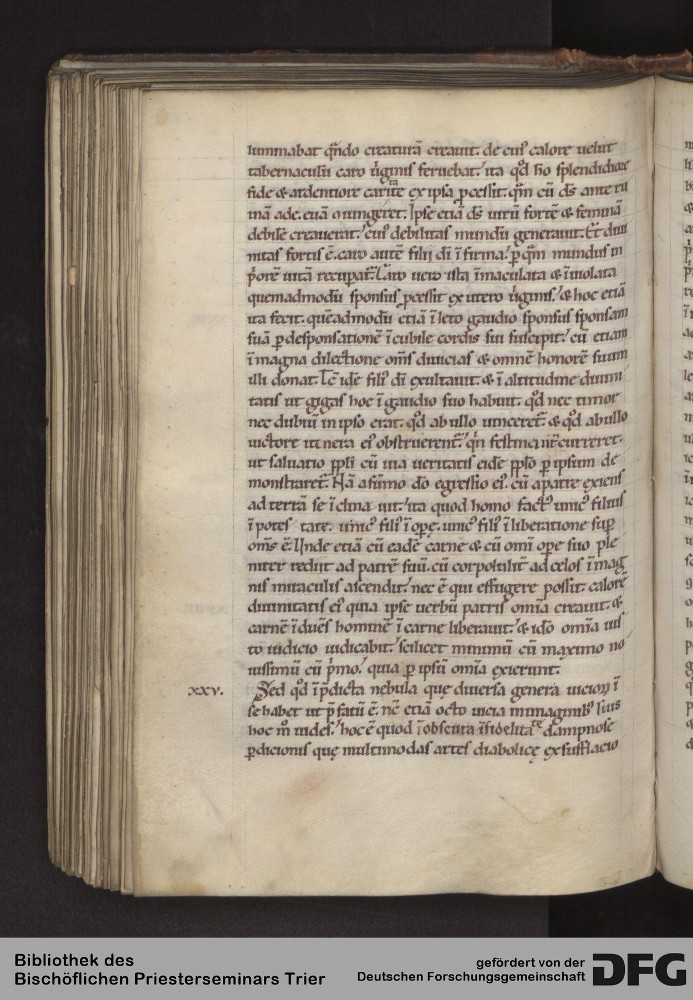 luminabat qn̄do creaturā creauit. de cui᷒ calore uelut
tabernaculū caro uiginis feruebat. ita qd̄ ħo splendidiore
fide & ardentiore caritate ex ipsa ꝓcessit. qm̄ cū ds̄ ante ru
inā ade. euā ꝯiungeret. Ipse etiā ds̄ uirū fortē & feminā
debilē creauerat. cui᷒ debilitas mundū generauit. Et diui
nitas fortis ē. caro autē filii di ī firma. ꝑ quā mundus in
priorē uitā recuꝑat̄. Caro uero ista īmaculata & īuiolata
quemadmodū sponsus ꝓcessit ex utero uiginis. & hoc etiā
ita fecit. quēadmodū etiā ī leto gaudio sponsus sponsam
suā ꝑ desponsationē ī cubile cordis sui suscipit. cū etiam
ī magna dilectione om̄s diuicias & omnē honorē suum
illi donat. Ic̄ idē fili᷒ dī exultauit. & ī altitudine diuini
tatis ut gigas hoc ī gaudio suo habuit. qd̄ nec timor
nec dubiū in ipso erat. qd̄ ab ullo uinceret̄. & qd̄ ab ullo
uictore itinera ei᷒ obstruerent̄. qn̄ festinant̄ curreret.
ut saluatio ppli cū uia ueritatis eidē pplo ꝑ ipsum de
monstraret̄. Nā a sūmo do egressio ei᷒. cū a patre exiens
ad terrā se ī clina uit. ita quod homo fact᷒ unic᷒ filius
ī potes tate. unic᷒ fili᷒ ī ope. unic᷒ fili᷒ ī liberatione suꝑ
om̄s ē. Unde etiā cū eadē carne & cū omī ope suo ple
niter rediit ad patrē suū. cū corpolulit̄ ad celos ī mag
nis miraculis ascendit. nec ē qui effugere possit calorē
diuinitatis ei᷒ quia ipse uerbū patris omīa creauit. &
carnē īduēs hominē ī carne liberauit. & idō omīa ius
to iudicio iudicabit. scilicet minimū cū maximo no
uissimū cū pmo. quia ꝑ ipsū omīa exierunt.
xxv. Sed qd̄ ī pdicta nebula quę diuersa genera uicioꝝ ī
se habet ut p̄fatū ē. nc̄ etiā octo uicia in imaginib᷒ suis
hoc m̊ uides. hoc ē quod ī obscura īfidelitate dampnose
ꝑdicionis quę multimodas artes diabolicę exsufflacio
Bibliothek des
Bischöflichen Priesterseminars Trier
gefördert von der
Deutschen Forschungsgemeinschaft
DFG